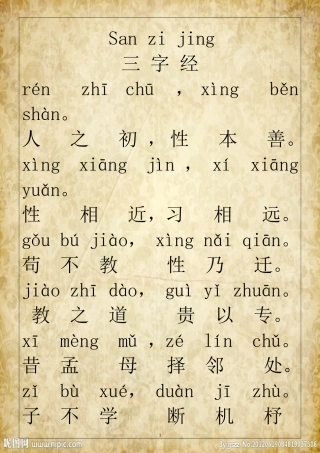 San zi jing
三 字 经
rén zhī chū ，xìng běn
shàn。
人 之 初，性 本 善。
xìng xiāng jìn，xí xiāng
yuǎn。
性 相 近，习 相 远。
gǒu bú jiào，xìng nǎi qiān。
苟 不 教 性 乃 迁。
jiào zhī dào，guì yǐ zhuān。
教 之 道 贵 以 专。
xī mèng mǔ，zé lín chǔ。
昔 孟 母 择 邻 处。
zǐ bù xué，duàn jī zhù。
子 不 学 断 机 杼
1
昵图网 www.nipic.com